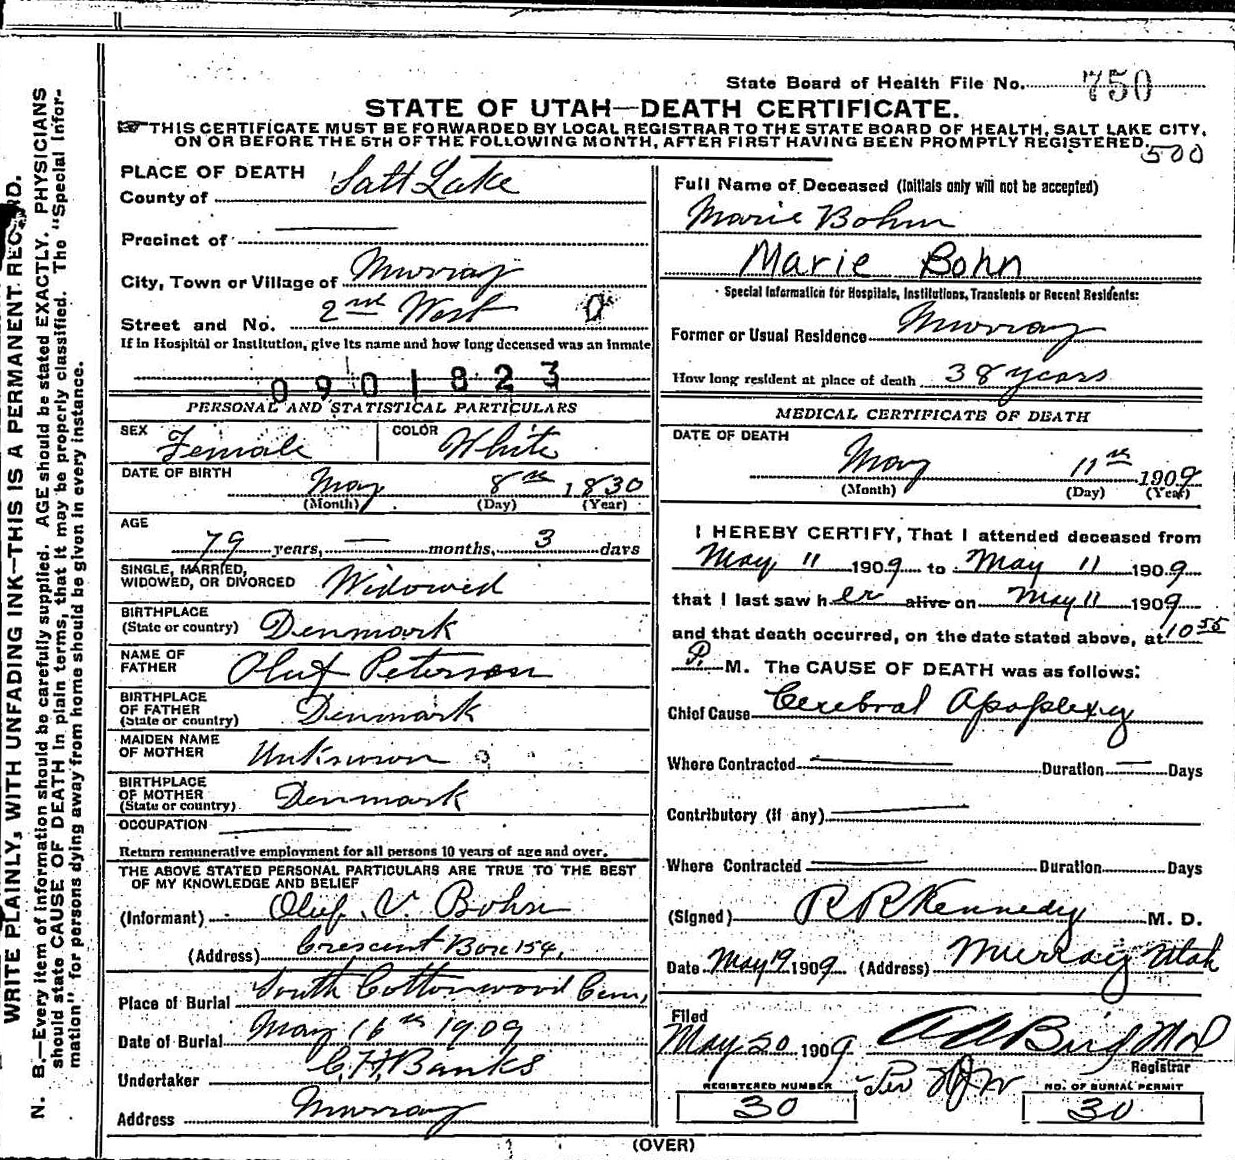 State Board of Health File No. 750
STATE OF UTAH—DEATH CERTIFICATE.
THIS CERTIFICATE MUST BE FORWARDED BY LOCAL REGISTRAR TO THE STATE BOARD OF HEALTH, SALT LAKE CITY,
ON OR BEFORE THE 5TH OF THE FOLLOWING MONTH, AFTER FIRST HAVING BEEN PROMPTLY REGISTERED.
500
WRITE PLAINLY, WITH UNFADING INK—THIS IS A PERMANENT RECORD.
N. B.—Every item of information should be carefully supplied. AGE should be stated EXACTLY. PHYSICIANS
should state CAUSE OF DEATH in plain terms, that it may be properly classified. The "Special Infor-
mation" for persons dying away from home should be given in every instance.
PLACE OF DEATH
County of Salt Lake
Precinct of
City, Town or Village of Murray
Street and No. 2nd West
If in Hospital or Institution, give its name and how long deceased was an inmate
0901823
PERSONAL AND STATISTICAL PARTICULARS
SEX Female COLOR White
DATE OF BIRTH May 8th 1830
(Month) (Day) (Year)
AGE
79 years, — months, 3 days
SINGLE, MARRIED,
WIDOWED, OR DIVORCED Widowed
BIRTHPLACE
(State or country) Denmark
NAME OF
FATHER Oluf Peterson
BIRTHPLACE
OF FATHER
(State or country) Denmark
MAIDEN NAME
OF MOTHER Unknown
BIRTHPLACE
OF MOTHER
(State or country) Denmark
OCCUPATION
Return remunerative employment for all persons 10 years of age and over.
THE ABOVE STATED PERSONAL PARTICULARS ARE TRUE TO THE BEST
OF MY KNOWLEDGE AND BELIEF
(Informant) Oluf V. Bohn
(Address) Crescent Box 154,
Place of Burial South Cottonwood Cem,
Date of Burial May 16th 1909
Undertaker C. H. Banks
Address Murray
Full Name of Deceased (Initials only will not be accepted)
Marie Bohn
Marie Bohn
Special Information for Hospitals, Institutions, Transients or Recent Residents:
Former or Usual Residence Murray
How long resident at place of death 38 years
MEDICAL CERTIFICATE OF DEATH
DATE OF DEATH
May 11th 1909
(Month) (Day) (Year)
I HEREBY CERTIFY, That I attended deceased from
May 11 1909 to May 11 1909
that I last saw her alive on May 11 1909
and that death occurred, on the date stated above, at 10 55
P. M. The CAUSE OF DEATH was as follows:
Chief Cause Cerebral Apoplexy
Where Contracted — Duration — Days
Contributory (if any)
Where Contracted — Duration Days
(Signed) R R Kennedy M. D.
Date May 19 1909 (Address) Murray Utah
Filed
May 20 1909 A A Bird M D
Registrar
Per
REGISTERED NUMBER 30
NO. OF BURIAL PERMIT 30
(OVER)